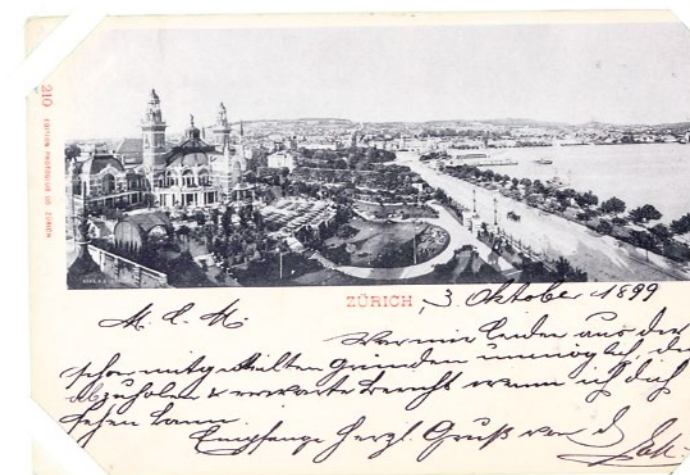 210 EDITION PHOTOGLOB CO ZÜRICH
ZÜRICH, 3. Oktober 1899
M. l. M.
War mir leider aus den
schon mitgeteilten Gründen unmöglich, dich
abzuholen & erwarte Bericht wann ich dich
sehen kann.
Empfange herzl. Gruß von d.